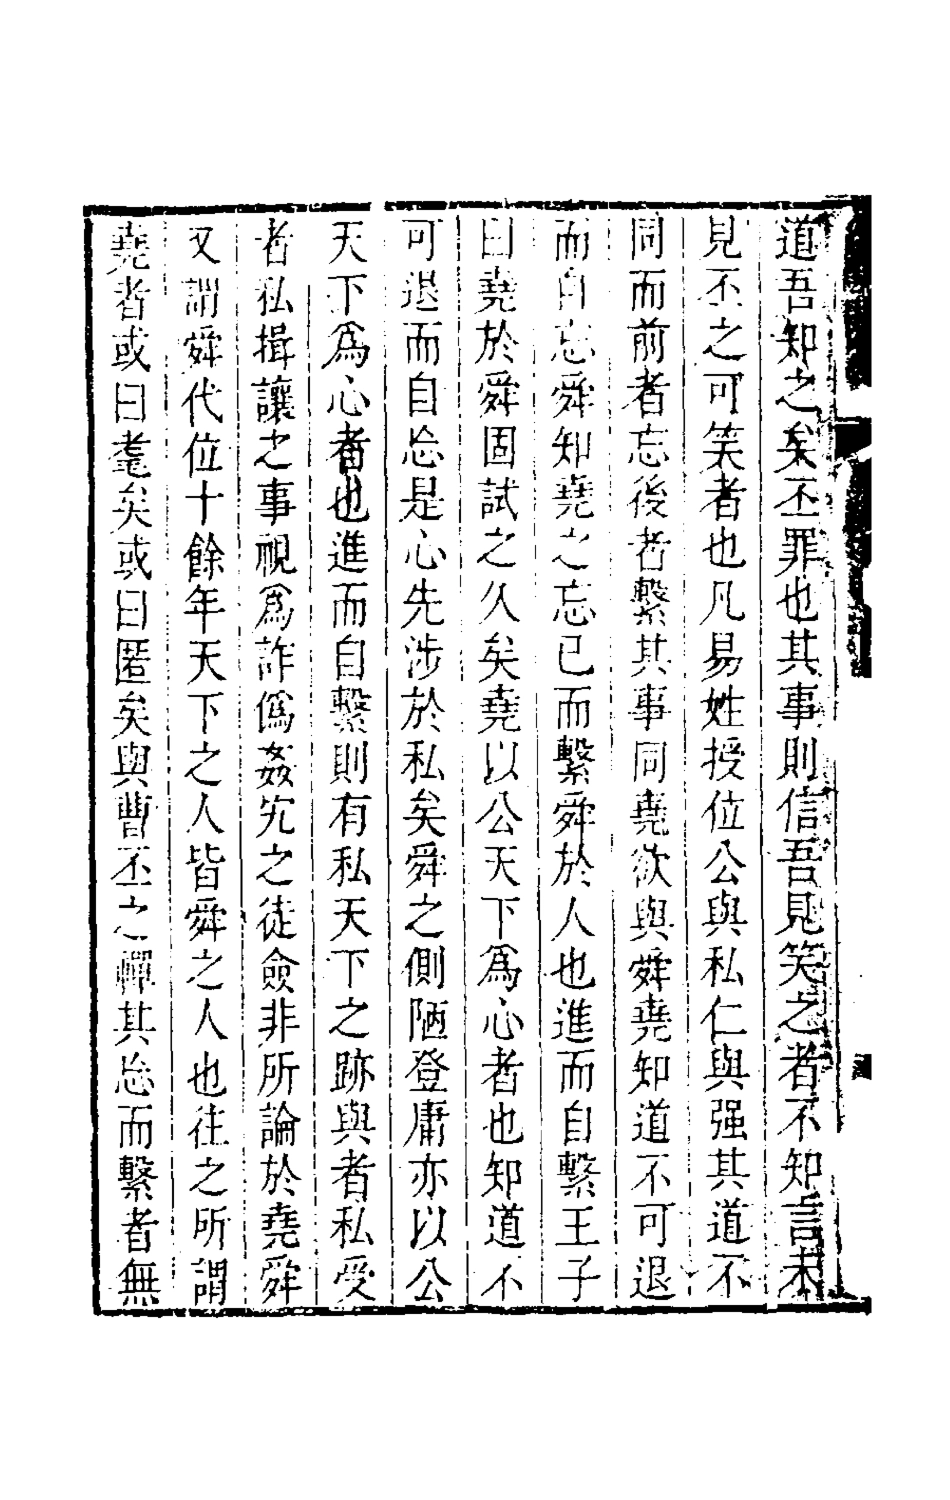 道吾知之矣丕罪也其事則信吾見笑之者不知言未
見丕之可笑者也凡易姓授位公與私仁與强其道不
同而前者忘後者繫其事同堯欲與舜堯知道不可退
而自忘舜知堯之忘已而繫舜於人也進而自繫王子
曰堯於舜固試之久矣堯以公天下爲心者也知道不
可退而自忘是心先涉於私矣舜之側陋登庸亦以公
天下爲心者也進而自繫則有私天下之跡與者私受
者私揖讓之事視爲詐僞姦宄之徒僉非所論於堯舜
又謂舜代位十餘年天下之人皆舜之人也往之所謂
堯者或曰耄矣或曰匿矣與曹丕之禪其忘而繫者無